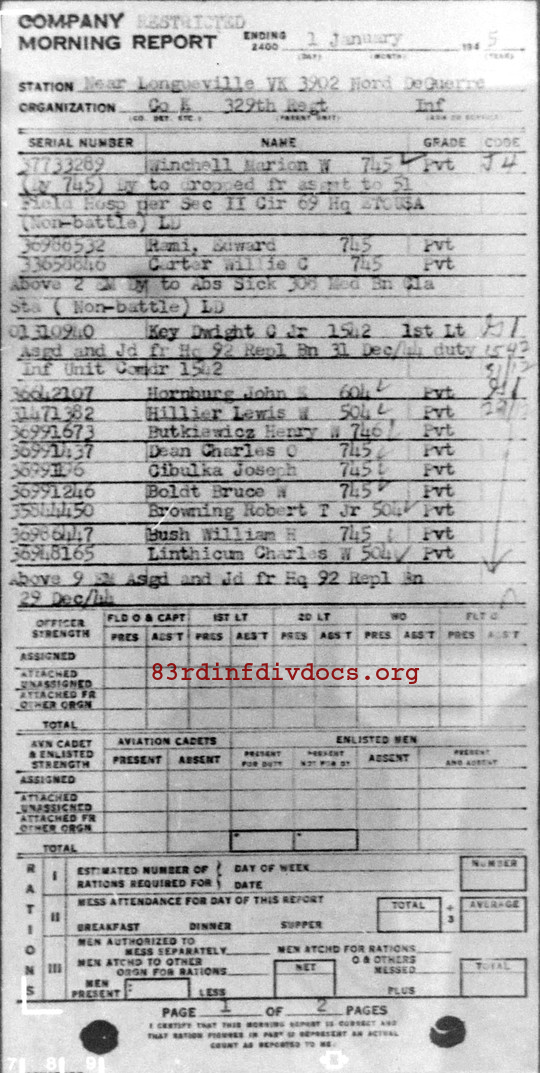 COMPANY RESTRICTED
MORNING REPORT ENDING 2400 1 January 194 5
(DAY) (MONTH) (YEAR)
STATION Near Longueville VK 3902 Nord DeGuerre
ORGANIZATION Co K 329th Regt Inf
(CO. DET. ETC.) (PARENT UNIT) (ARM OR SERVICE)
SERIAL NUMBER NAME GRADE CODE
37733289 Winchell Marion W 745 Pvt J4
(Dy 745) Dy to dropped fr asgmt to 51
Field Hosp per Sec II Cir 69 Hq ETOUSA
(Non-battle) LD
36986532 Rami, Edward 745 Pvt
33658646 Carter Willie C 745 Pvt
Above 2 EM Dy to Abs Sick 308 Med Bn Cla
Sta ( Non-battle) LD
01310940 Key Dwight C Jr 1542 1st Lt
Asgd and Jd fr Hq 92 Repl Bn 31 Dec/44 duty 1542
Inf Unit Comdr 1542 31/12
36642107 Hornburg John 604 Pvt
31471382 Hillier Lewis W 504 Pvt
36991673 Butkiewicz Henry W 746 Pvt
36991437 Dean Charles O 745 Pvt
Cibulka Joseph 745 Pvt
36991246 Boldt Bruce W 745 Pvt
35844450 Browning Robert T Jr 504 Pvt
36986447 Bush William H 745 Pvt
36948165 Linthicum Charles W 504 Pvt
Above 9 EM Asgd and Jd fr Hq 92 Repl Bn
29 Dec/44
OFFICER STRENGTH FLD O & CAPT 1ST LT 2D LT WO FLT O
PRES ABS'T PRES ABS'T PRES ABS'T PRES ABS'T PRES ABS'T
ASSIGNED
ATTACHED UNASSIGNED
ATTACHED FR OTHER ORGN
TOTAL
83rdinfdivdocs.org
AVN CADET & ENLISTED STRENGTH AVIATION CADETS ENLISTED MEN
PRESENT ABSENT PRESENT FOR DUTY PRESENT NOT FOR DY ABSENT PRESENT AND ABSENT
ASSIGNED
ATTACHED UNASSIGNED
ATTACHED FR OTHER ORGN
TOTAL
RATIONS
I ESTIMATED NUMBER OF RATIONS REQUIRED FOR DAY OF WEEK DATE NUMBER
II MESS ATTENDANCE FOR DAY OF THIS REPORT TOTAL ÷ 3 AVERAGE
BREAKFAST DINNER SUPPER
III MEN AUTHORIZED TO MESS SEPARATELY MEN ATCHD FOR RATIONS
MEN ATCHD TO OTHER ORGN FOR RATIONS NET O & OTHERS MESSED TOTAL
MEN PRESENT LESS PLUS
PAGE 1 OF 2 PAGES
I CERTIFY THAT THIS MORNING REPORT IS CORRECT AND
THAT RATION FIGURES IN PART III REPRESENT AN ACTUAL
COUNT AS REPORTED TO ME:
7 8 9